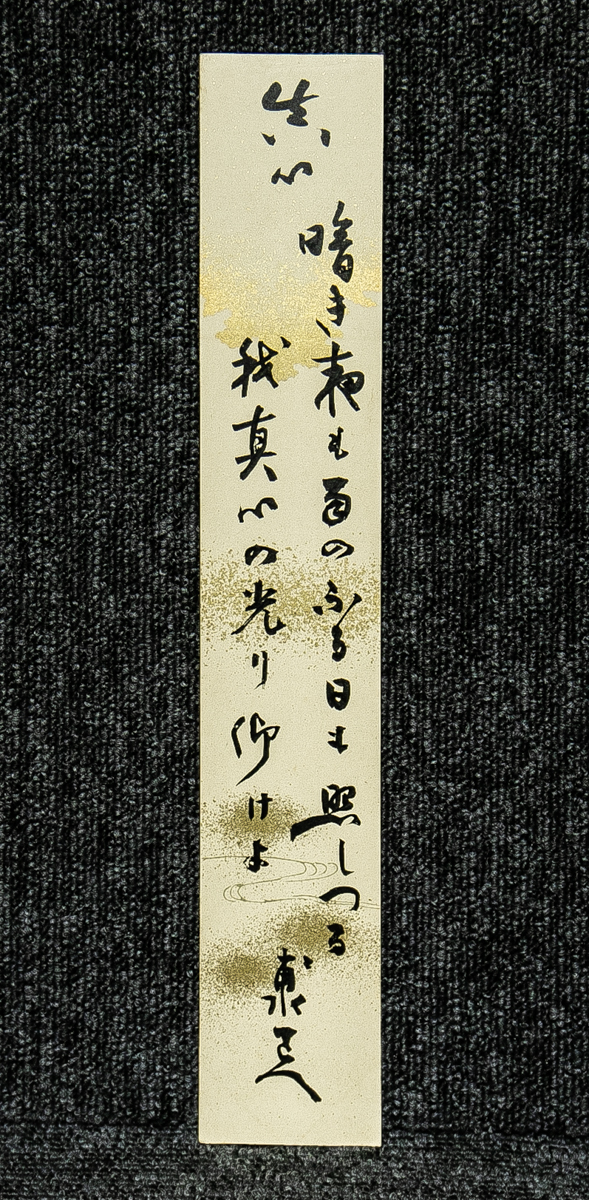 真心
暗き夜も雨のふる日も照しつる
我真心の光り仰けよ